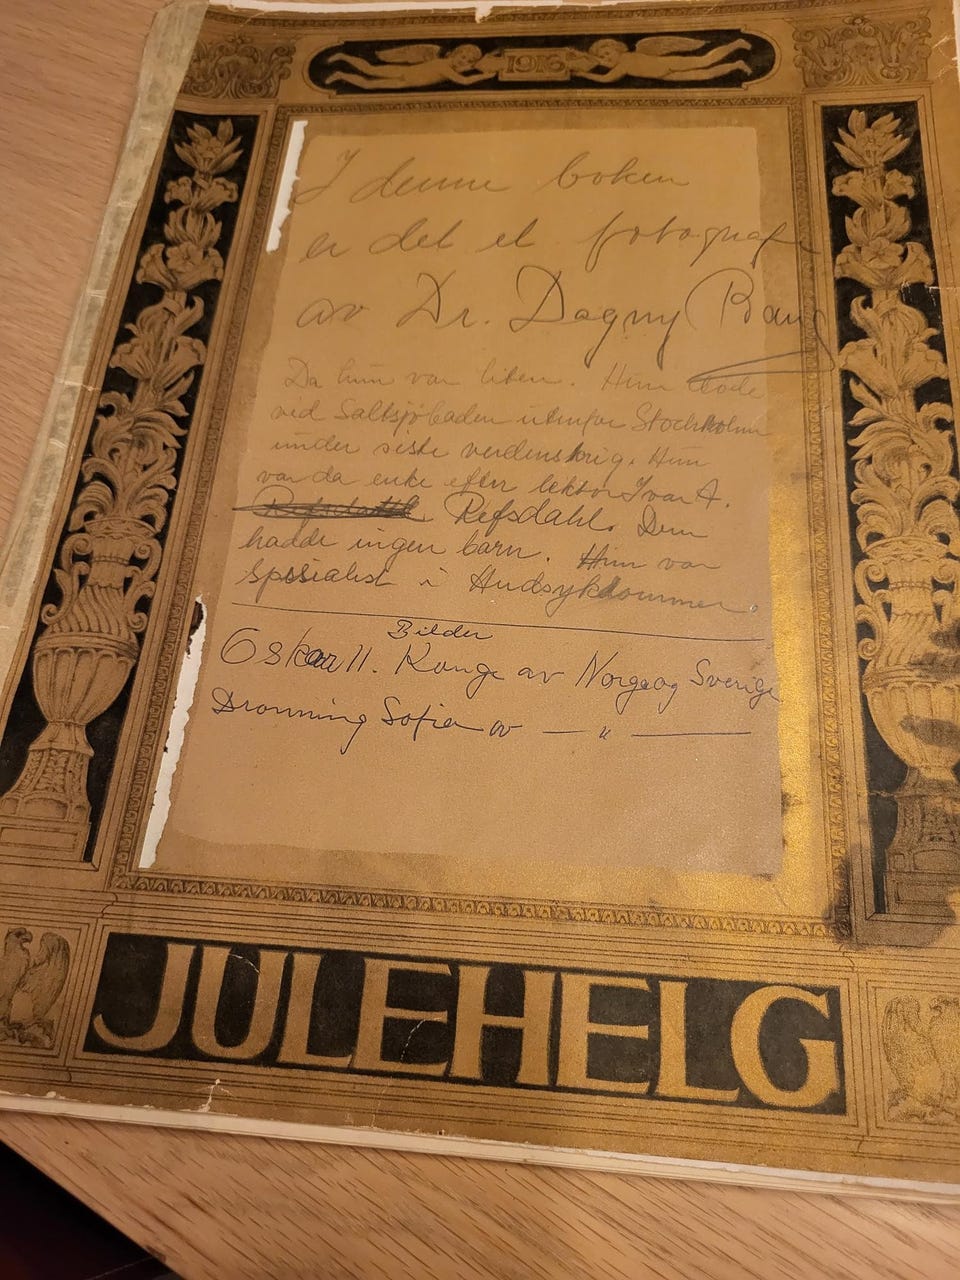 1916
I denne boken
er det et fotografi
av Dr. Dagny Bang
Da hun var liten. Hun bode
ved Saltsjöbaden utenfor Stockholm
under siste verdenskrig. Hun
var da enke efter lektor Ivar A.
Refsdahl. Dem
hadde ingen barn. Hun var
spesialist i Hudsykdommer.
Bilder
Oskar II. Konge av Norge og Sverige
Dronning Sofia av — " —
JULEHELG